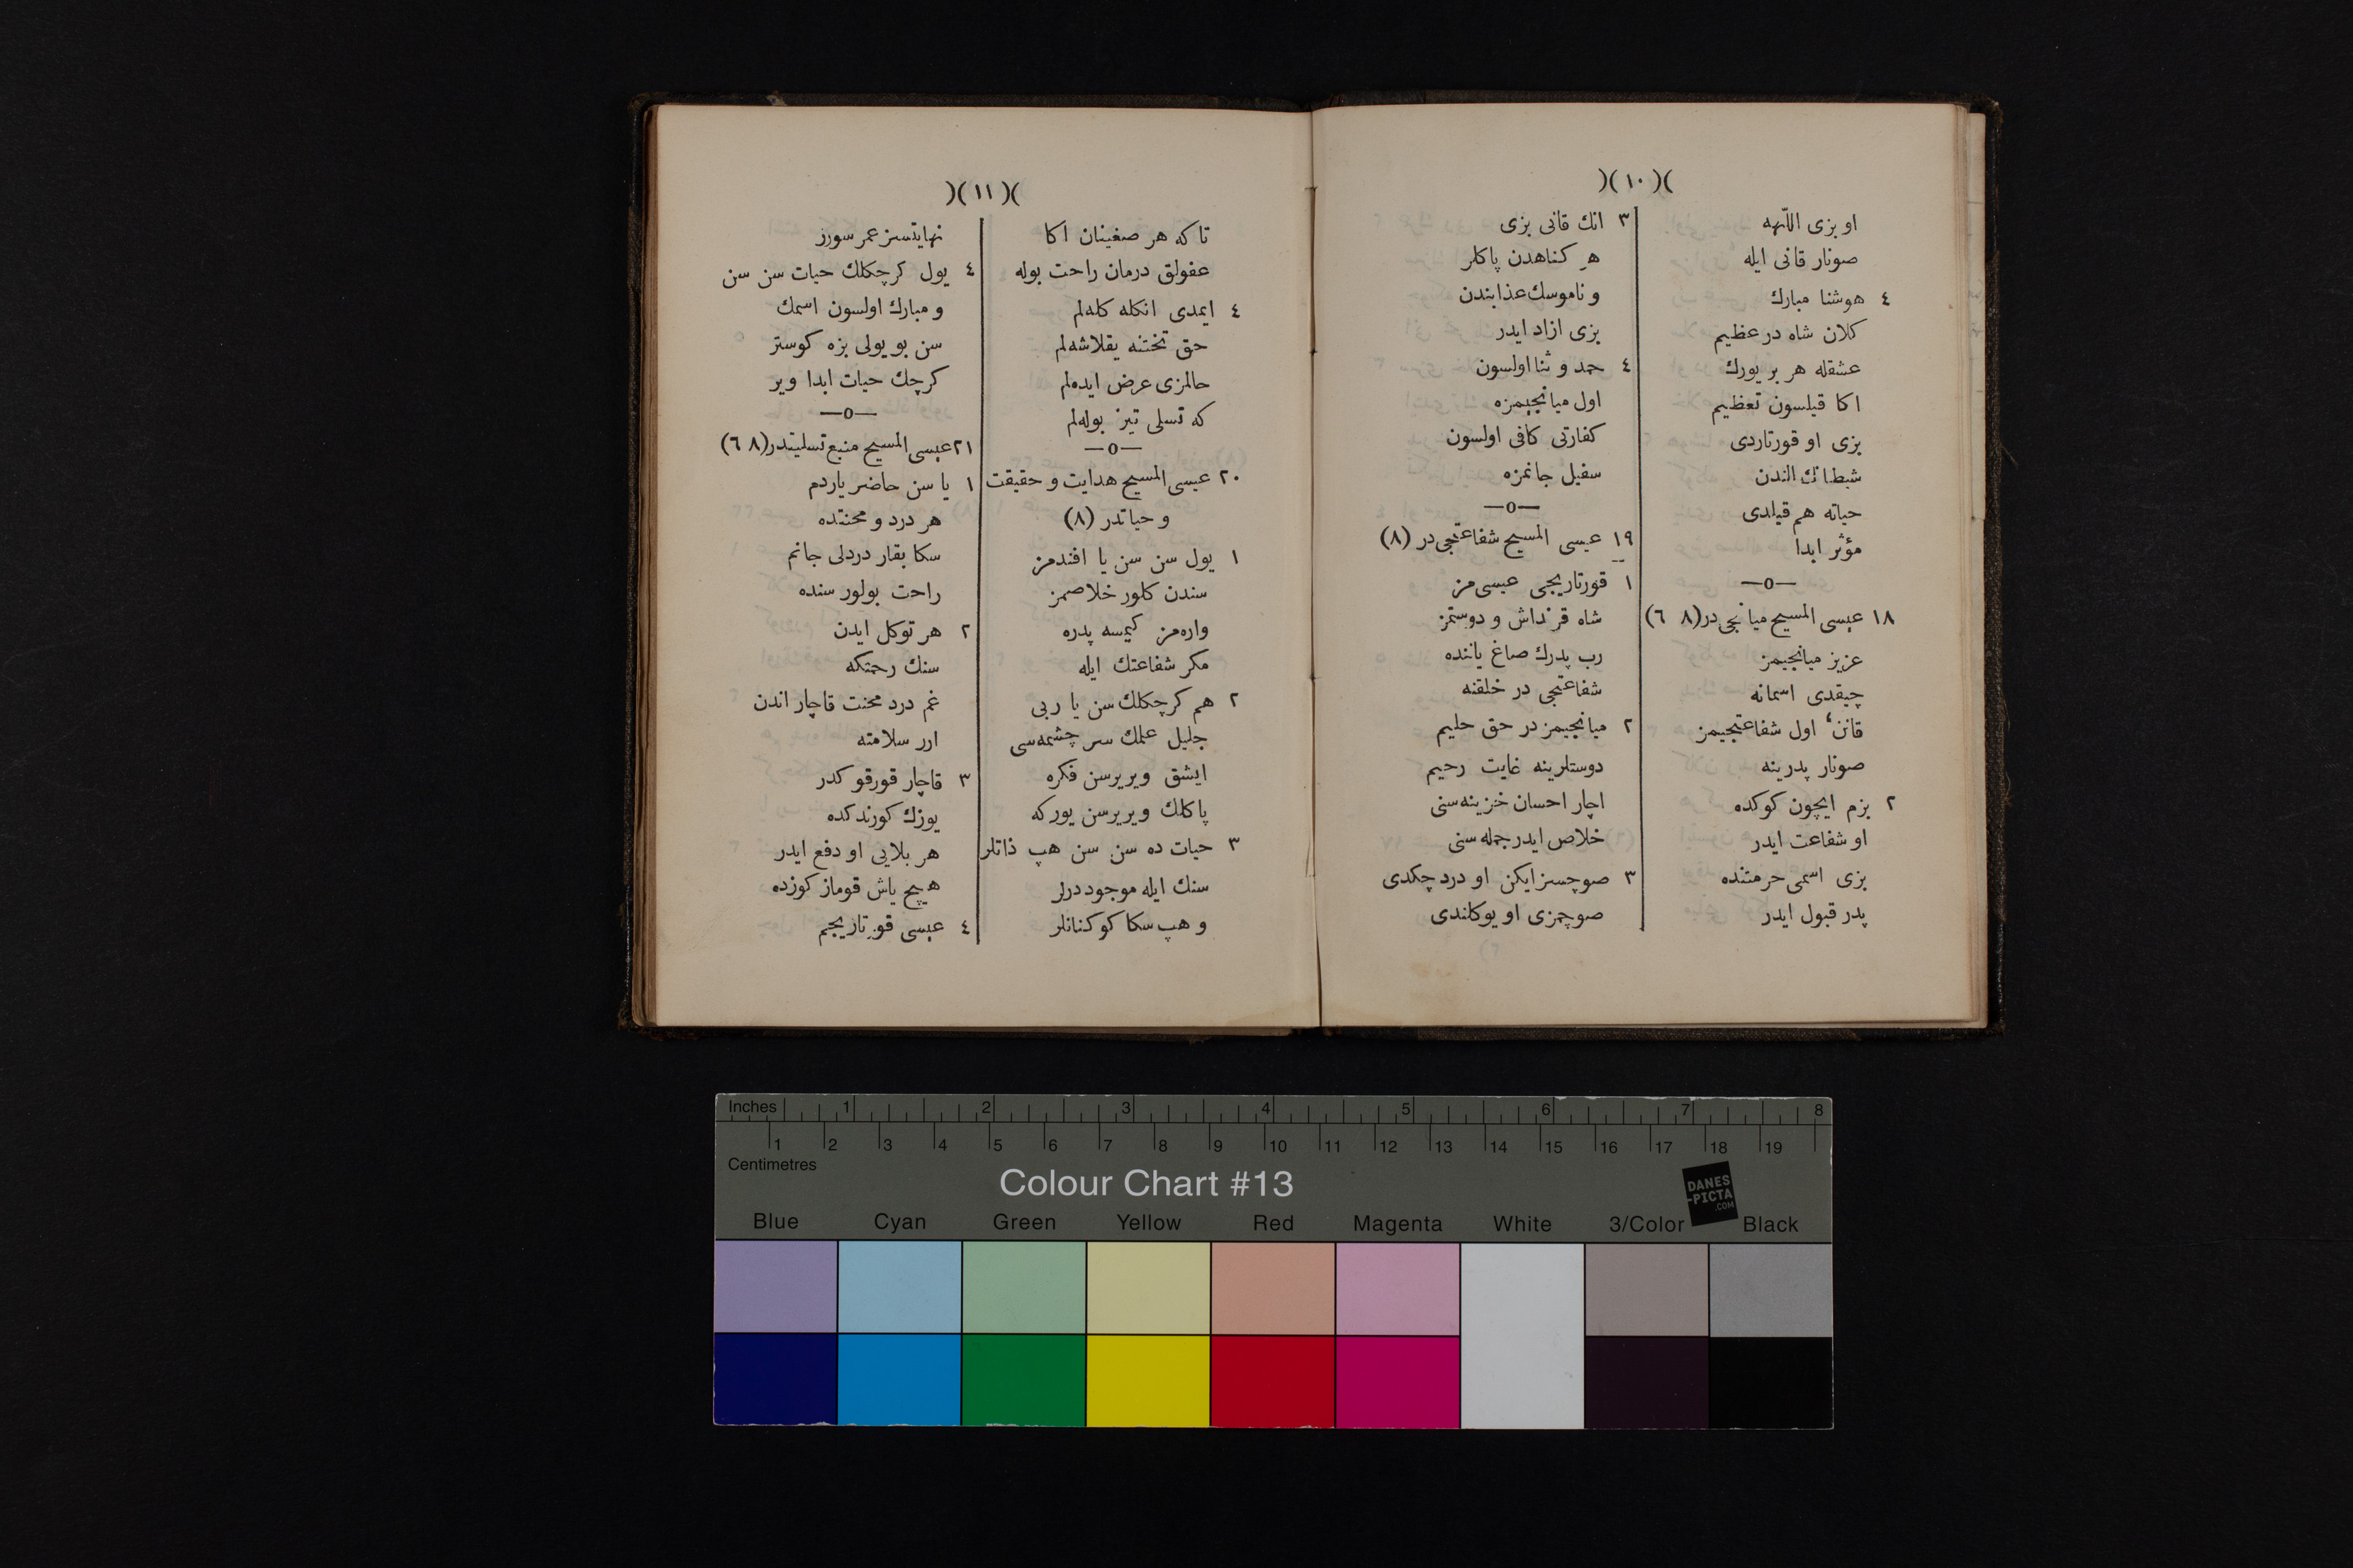 )( ١٠ )(
او بزى اللّٰهه
صونار قانى ايله
٤ هوشنا مبارك
كلان شاه در عظيم
عشقله هر بر يورك
اكا قيلسون تعظيم
بزى او قورتاردى
شيطانك الندن
حياته هم قيلدى
مؤثر ابدا
—o—
١٨ عيسى المسيح ميانجى در (٨ ٦)
عزيز ميانجيمز
چيقدى اسمانه
قانن اول شفاعتجيمز
صونار پدرينه
٢ بزم ايچون كوكده
او شفاعت ايدر
بزى اسمى حرمتنده
پدر قبول ايدر
٣ انك قانى بزى
هر كناهدن پاكلر
و ناموسك عذابندن
بزى ازاد ايدر
٤ حمد و ثنا اولسون
اول ميانجيمزه
كفارتى كافى اولسون
سفيل جانمزه
—o—
١٩ عيسى المسيح شفاعتجى در (٨)
١ قورتاريجى عيسى مز
شاه قرنداش و دوستمز
رب پدرك صاغ ياننده
شفاعتجى در خلقنه
٢ ميانجيمز در حق حليم
دوستلرينه غايت رحيم
اچار احسان خزينه سنى
خلاص ايدر جمله سنى
٣ صوچسز ايكن او درد چكدى
صوچمزى او يوكلندى
)( ١١ )(
تا كه هر صغينان اكا
عفولق درمان راحت بوله
٤ ايمدى انكله كله لم
حق تختنه يقلاشه لم
حالمزى عرض ايده لم
كه تسلى تيز بوله لم
—o—
٢٠ عيسى المسيح هدايت و حقيقت
و حياتدر (٨)
١ يول سن سن يا افندمز
سندن كلور خلاصمز
واره مز كيمسه پدره
مكر شفاعتك ايله
٢ هم كرچكلك سن يا ربى
جليل علمك سر چشمه سى
ايشق ويررسن فكره
پاكلك ويررسن يوركه
٣ حيات ده سن سن هپ ذاتلر
سنك ايله موجوددرلر
و هپ سكا كوكنانلر
نهايتسز عمر سورر
٤ يول كرچكلك حيات سن سن
و مبارك اولسون اسمك
سن بو يولى بزه كوستر
كرچك حيات ابدا وير
—o—
٢١ عيسى المسيح منبع تسليتدر (٨ ٦)
١ يا سن حاضر ياردم
هر درد و محنتده
سكا بقار دردلى جانم
راحت بولور سنده
٢ هر توكل ايدن
سنك رحمتكه
غم درد محنت قاچار اندن
ارر سلامته
٣ قاچار قورقو كدر
يوزك كورندكده
هر بلايى او دفع ايدر
هيچ ياش قوماز كوزده
٤ عيسى قورتاريجم
Inches 1 2 3 4 5 6 7 8
1 2 3 4 5 6 7 8 9 10 11 12 13 14 15 16 17 18 19
Centimetres
Colour Chart #13
DANES
-PICTA
.COM
Blue Cyan Green Yellow Red Magenta White 3/Color Black